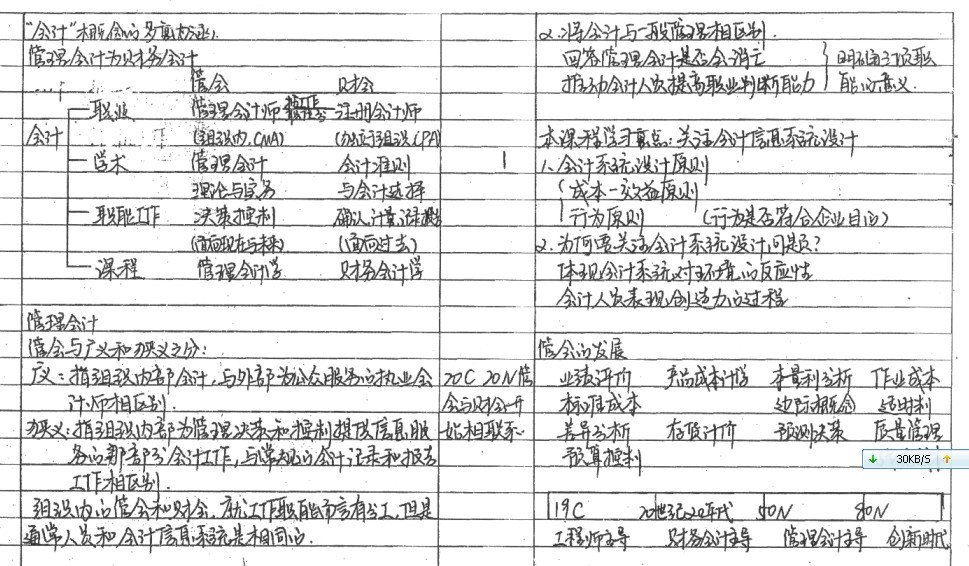 "会计"概念的多重内涵:
管理会计与财务会计
管会 财会
会计
职业 管理会计师 注册会计师
(组织内,CMA) (独立组织CPA)
学术 管理会计 会计准则
理论与实务 与会计选择
职能工作 决策控制 确认计量记录报告
(面向现在与未来) (面向过去)
课程 管理会计学 财务会计学
管理会计
管会与广义和狭义之分:
广义:指组织内部会计,与外部为公众服务的执业会
计师相区别.
狭义:指组织内部为管理决策和控制提供信息服
务的那部分会计工作,与常规的会计记录和报告
工作相区别.
组织内的管会和财会,就工作职能而言有分工,但是
通常人员和会计信息系统是相同的.
20C 20N管
会与财会开
始相联系
2.将会计与一般管理相区别.
回答管理会计是否会消亡
推动会计人员提高职业判断能力
明确3项职
能的意义
本课程学习重点:关注会计信息系统设计
1、会计系统设计原则
成本—效益原则
行为原则 (行为是否符合企业目的)
2.为何要关注会计系统设计问题?
体现会计系统对环境的反应性
会计人员表现创造力的过程
管会的发展
业绩评价 产品成本计学 本量利分析 作业成本
标准成本 边际概念 适时制
差异分析 存货计价 预测决策 质量管理
预算控制
30KB/S
19C 20世纪20年代 50N 80N
工程师主导 财务会计主导 管理会计主导 创新时代